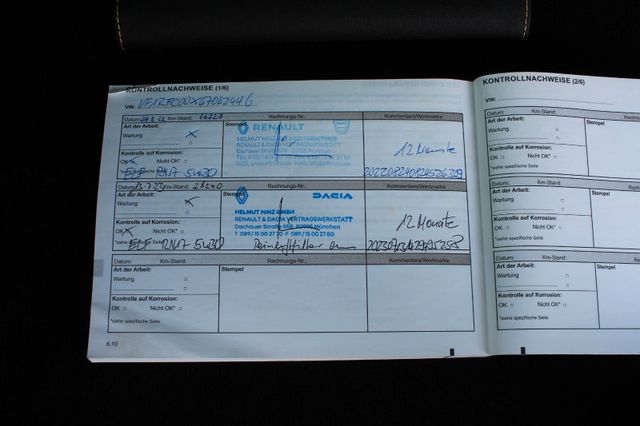 KONTROLLNACHWEISE (1/6)
VIN:
Datum: 29.8.22 Km-Stand: 14727 Rechnungs-Nr.: Kommentare/Wertmarke
Art der Arbeit: Stempel
Wartung
RENAULT
HELMUT HINZ MEISTERBETRIEB
RENAULT & DACIA VERTRAGSWERKSTATT
12 Monate
Kontrolle auf Korrosion:
OK Nicht OK*
*siehe spezifische Seite
ELF RN17 5W30
Datum: 13.7.23 Km-Stand: 25240 Rechnungs-Nr.: Kommentare/Wertmarke
Art der Arbeit: Stempel
Wartung
DACIA
HELMUT HINZ GMBH
RENAULT & DACIA VERTRAGSWERKSTATT
Dachauer Straße 80992 München
T 089/15 00 27 70 F 089/15 00 27 80
12 Monate
Kontrolle auf Korrosion:
OK Nicht OK*
*siehe spezifische Seite
ELF RN17 5W30
Datum: Km-Stand: Rechnungs-Nr.: Kommentare/Wertmarke
Art der Arbeit: Stempel
Wartung
Kontrolle auf Korrosion:
OK Nicht OK*
*siehe spezifische Seite
6.10
KONTROLLNACHWEISE (2/6)
VIN:
Datum: Km-Stand:
Art der Arbeit: Stempel
Wartung
Kontrolle auf Korrosion:
OK Nicht OK*
*siehe spezifische Seite
Datum: Km-Stand:
Art der Arbeit: Stempel
Wartung
Kontrolle auf Korrosion:
OK Nicht OK*
*siehe spezifische Seite
Datum: Km-Stand:
Art der Arbeit: Stempel
Wartung
Kontrolle auf Korrosion:
OK Nicht OK*
*siehe spezifische Seite